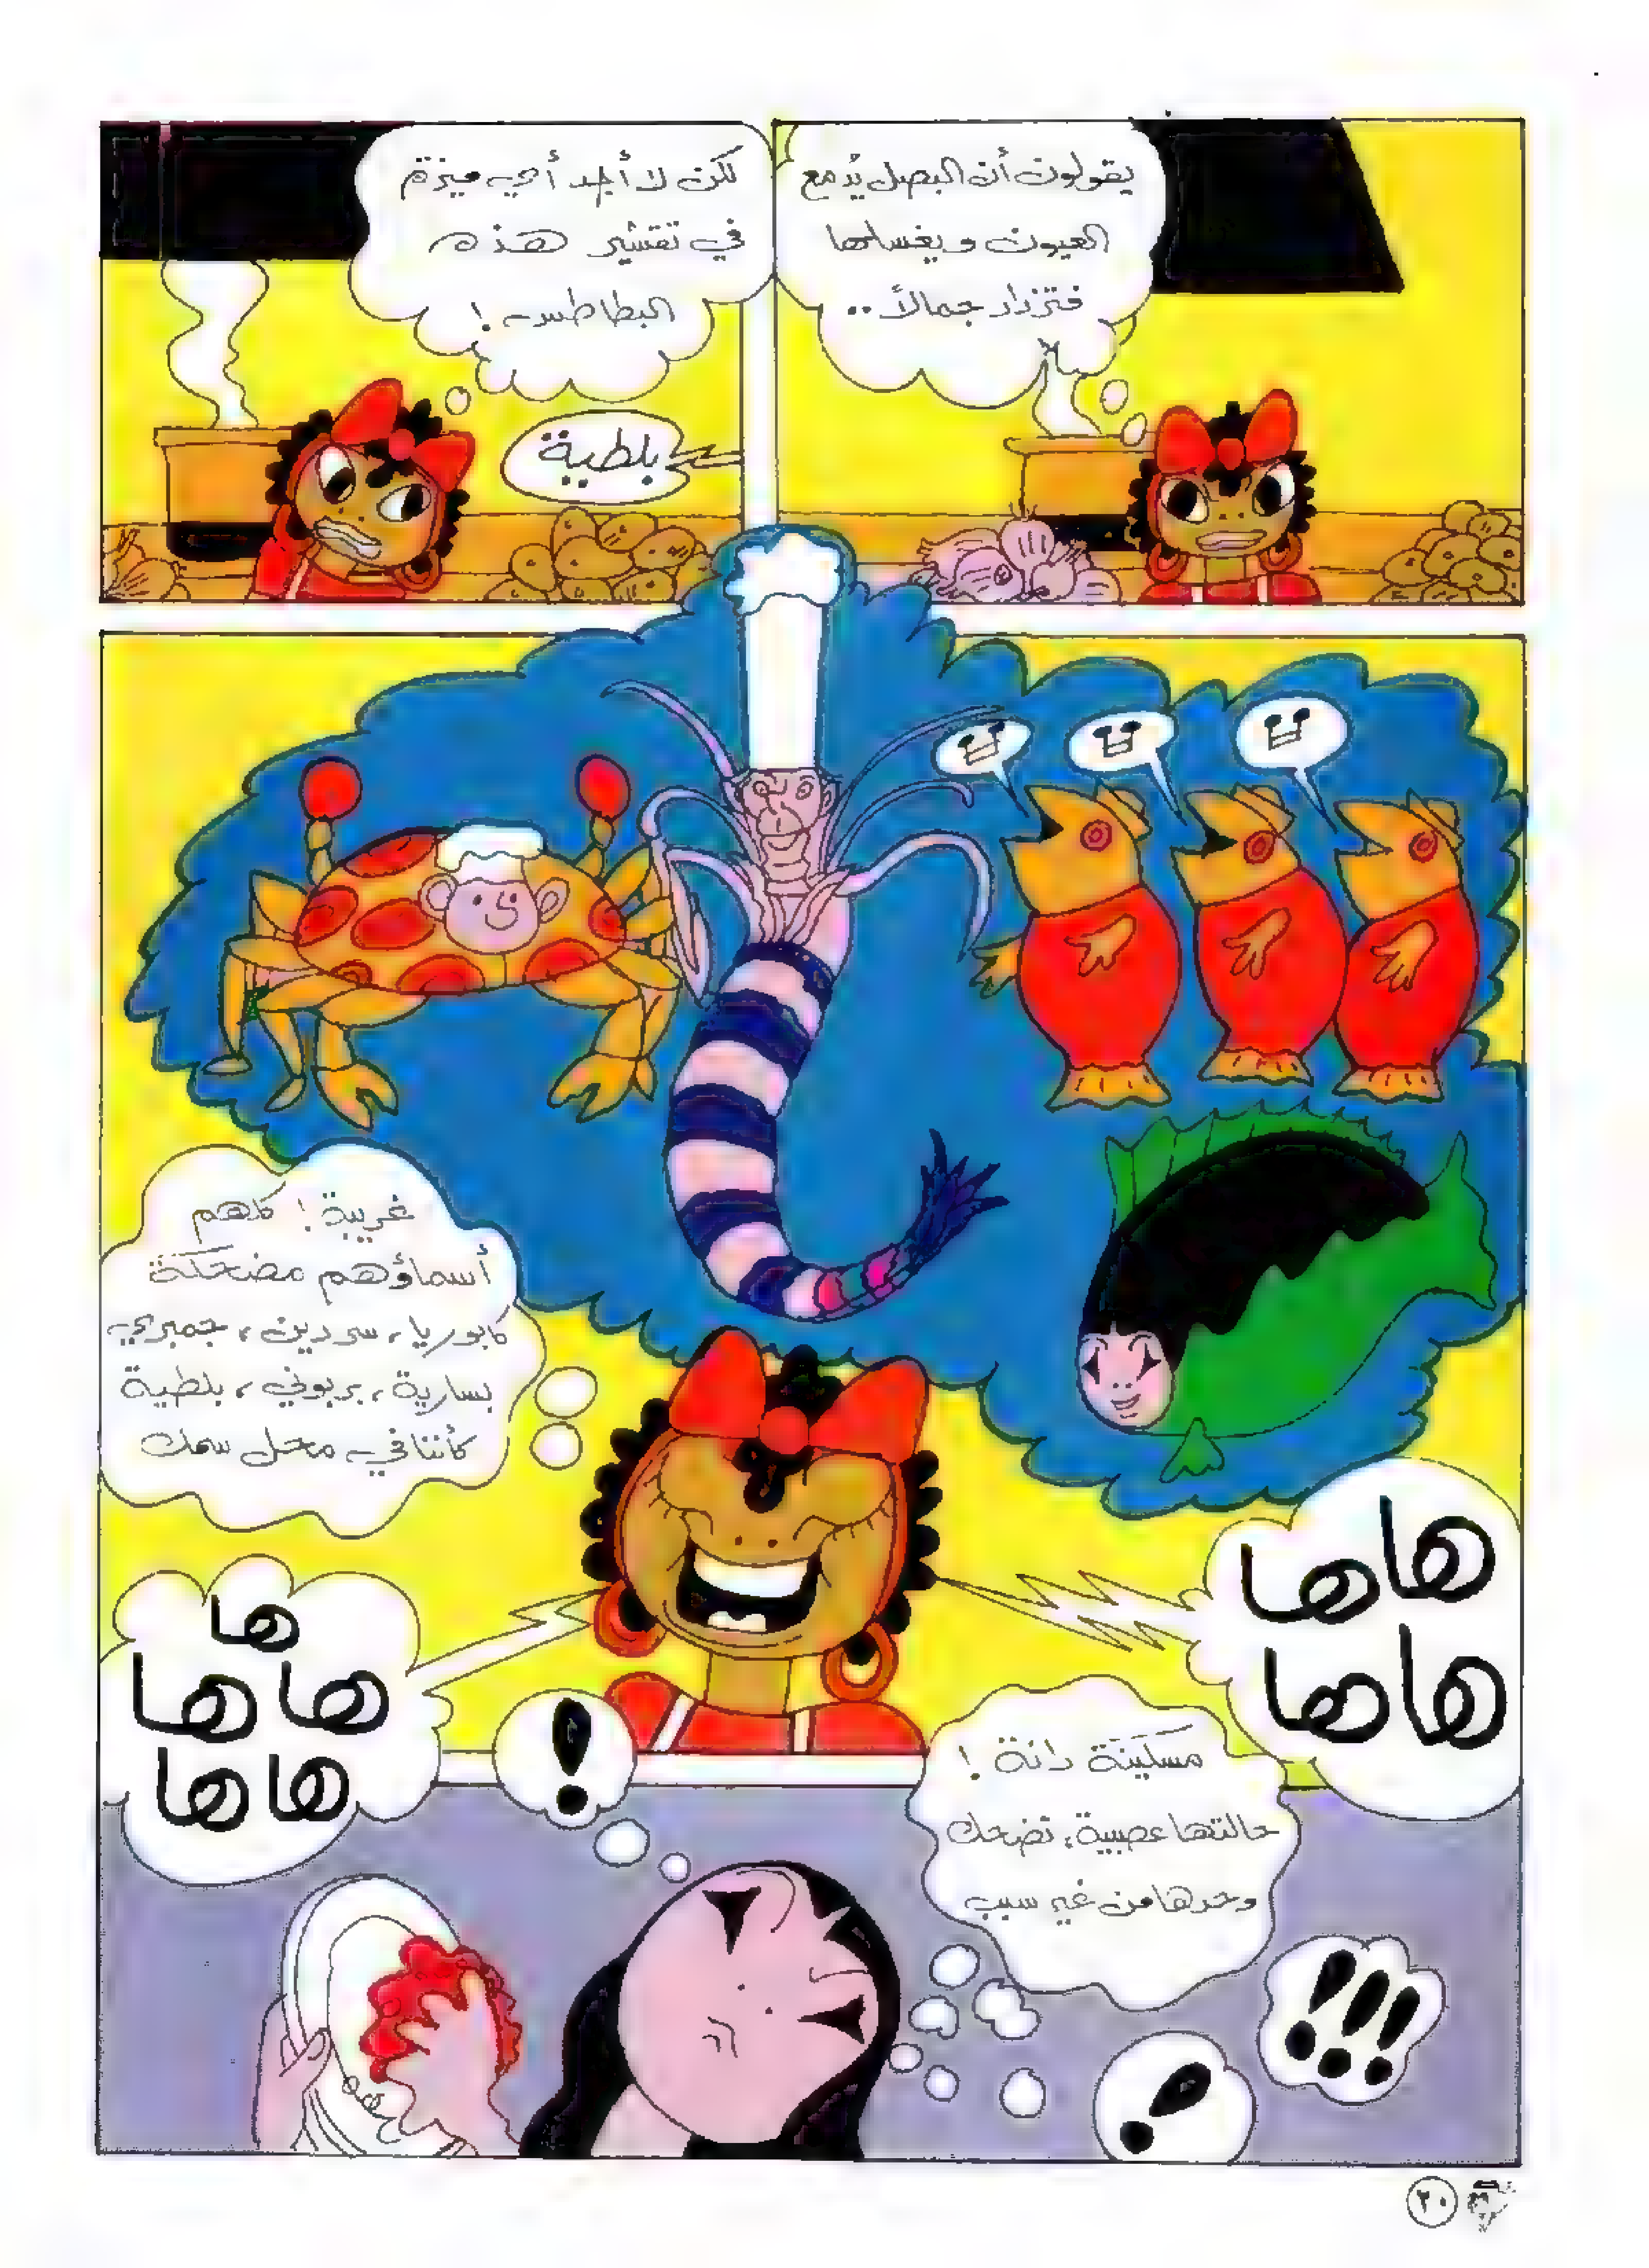 يقولون أن البصل يُدمع
العيون ويغسلها
فتزداد جمالاً..
لكن لا أجد أي ميزة
في تقشير هذه
البطاطس!
بلطية
غريبة! كلهم
أسماؤهم مضحكة
كابوريا، سردين، جمبري
بسارية، بربوني، بلطية
كأننا في محل سمك
هاها
هاها
ها
هاها
هاها
مسكينة دانة!
حالتها عصبية، تضحك
وحدها من غير سبب
!
!
!!!
٢٠